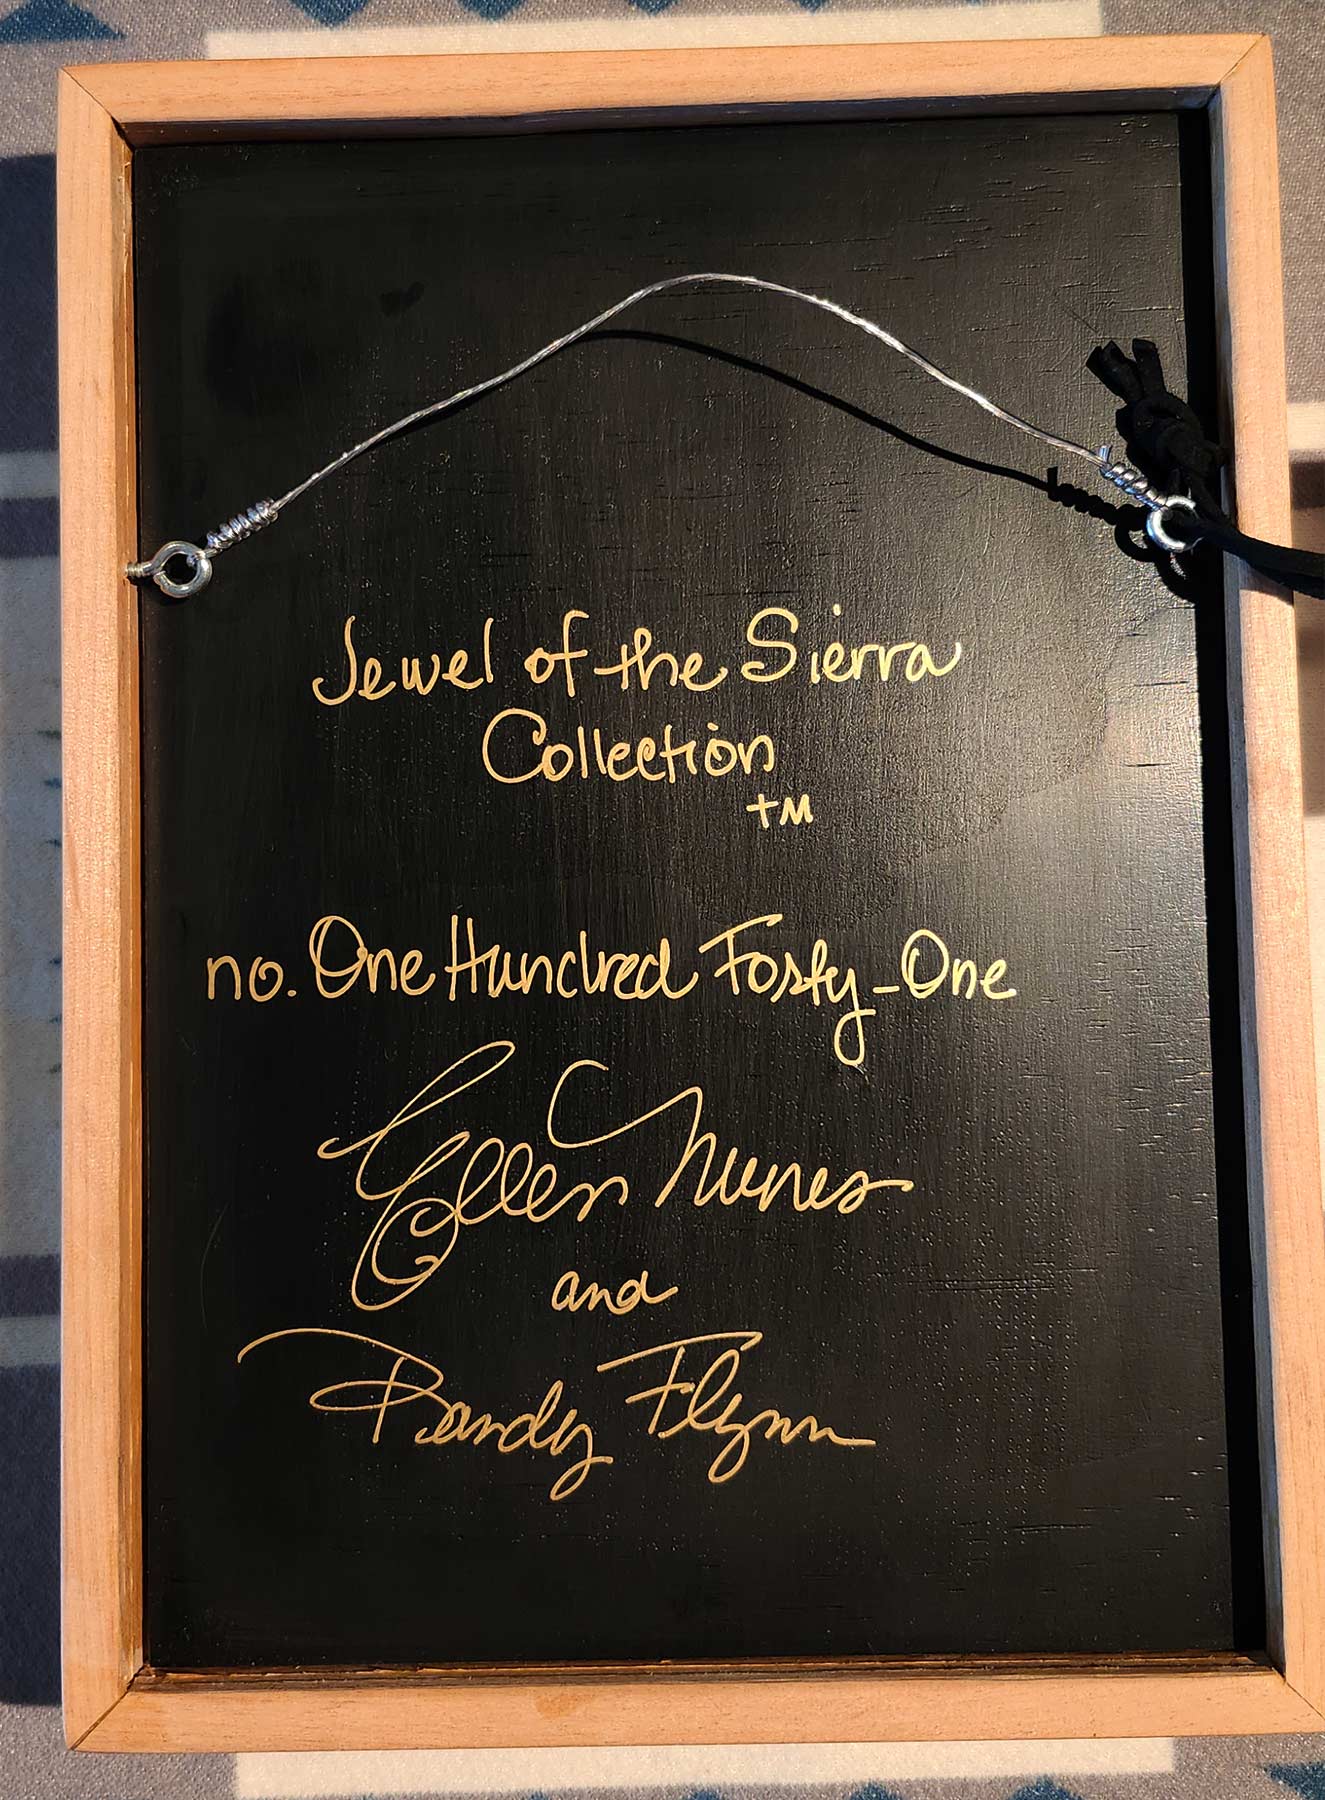 Jewel of the Sierra
Collection
TM
no. One Hundred Forty-One
Ellen Nunes
and
Randy Flynn